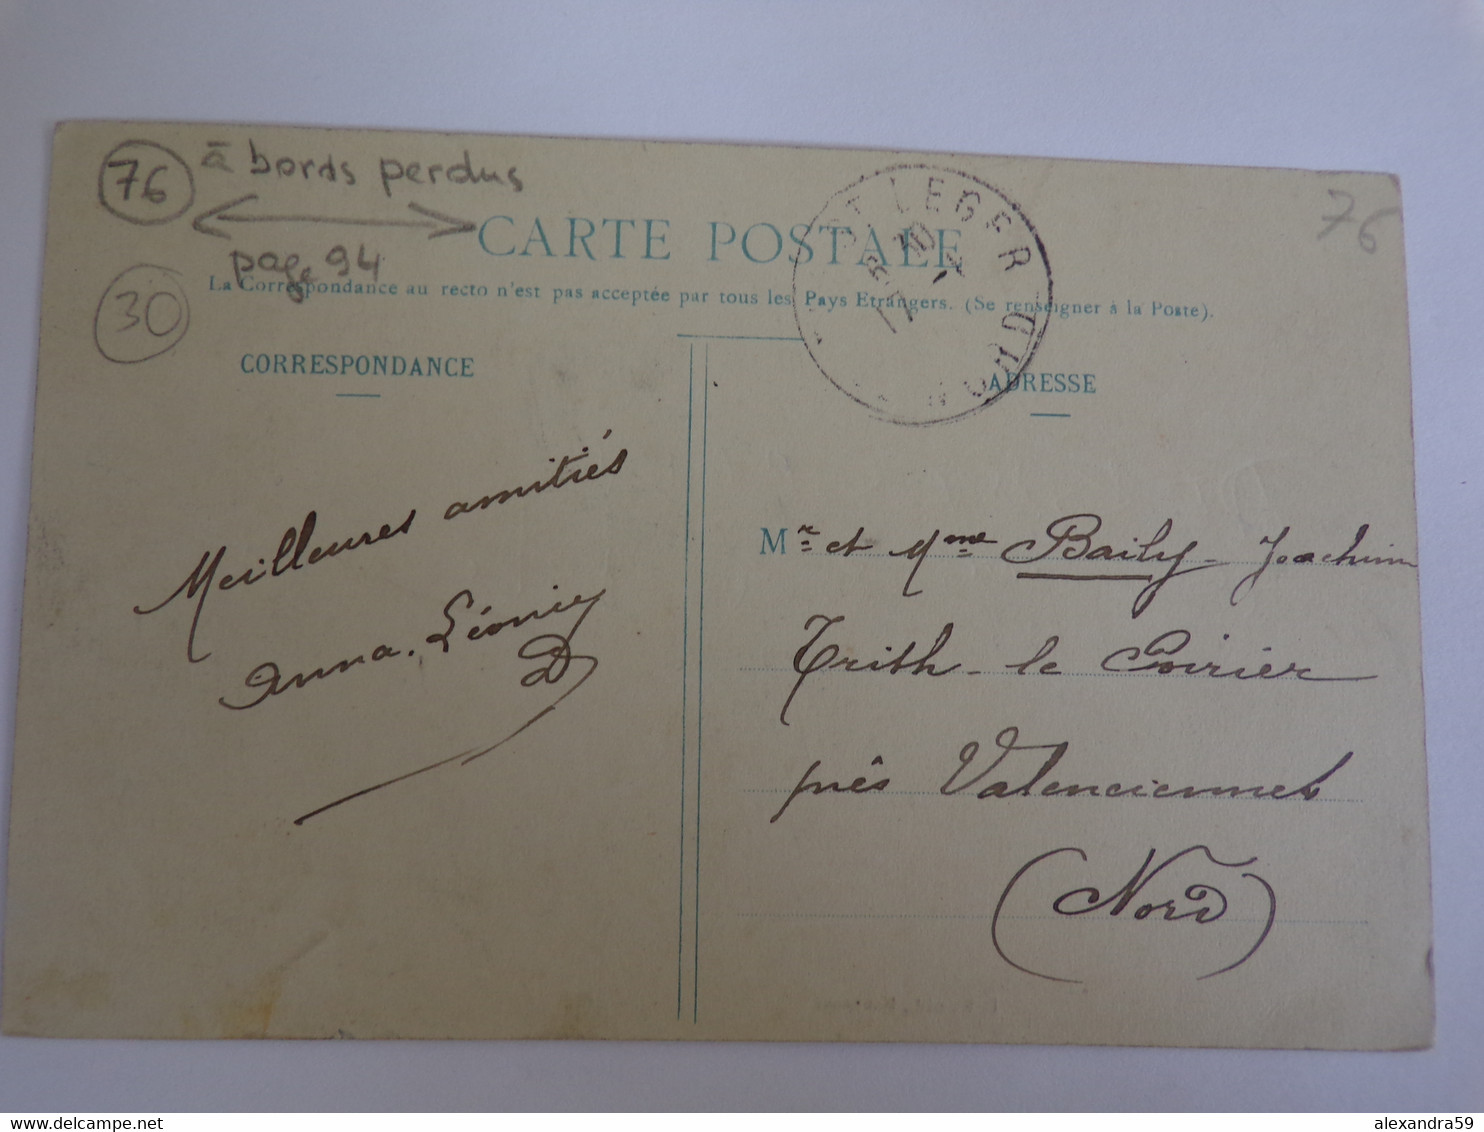 76 à bords perdus
page 94
30
76
CARTE POSTALE
La Correspondance au recto n'est pas acceptée par tous les Pays Etrangers. (Se renseigner à la Poste).
ST LEGER DU
CORRESPONDANCE
ADRESSE
Meilleures amitiés
Anna. Léonie
D
Mr et Mme Baily-Joachim
Trith-le Poirier
près Valenciennes
(Nord)
delcampe.net
alexandra59